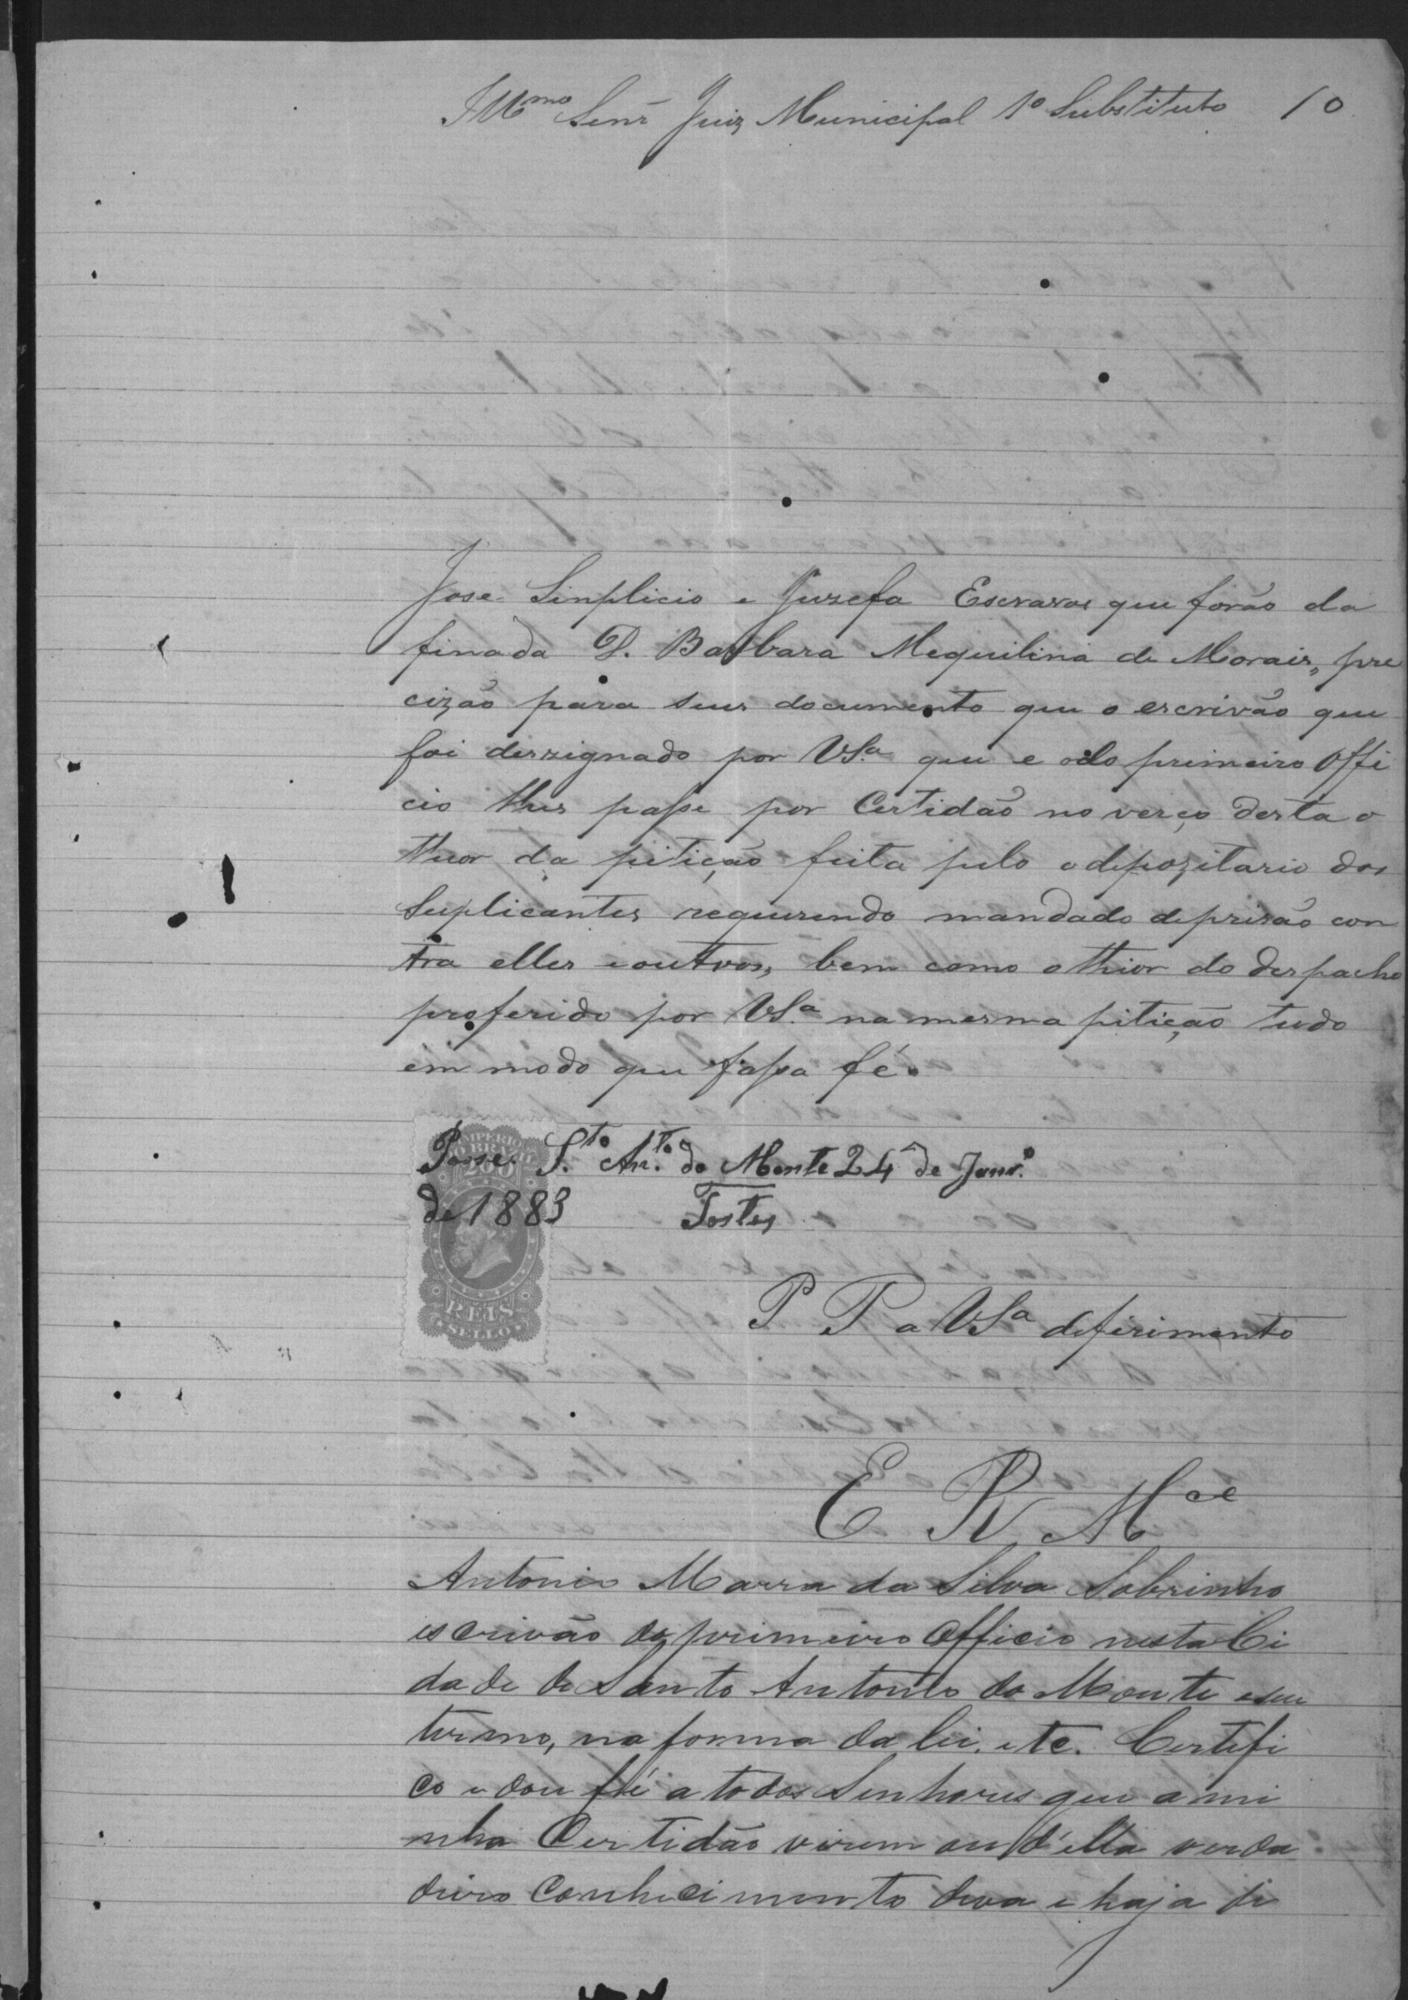 Illmo Senr Juiz Municipal 1º Substituto 10
Jose Sinplicio e Juzefa Escravos que forão da
finada D. Barbara Mequilina de Morais, pre
cizão para seus documento que o escrivão que
foi derzignado por VSa. que e odo primeiro Offi
cio thes passe por Certidão no verço desta o
theor da pitição feita pelo odepozitario dos
Suplicantes requerendo mandado deprizão con
tra elles e outros, bem como o thior do despacho
proferido por VSa. na mesma pitição tudo
em modo que fassa fé.
IMPERIO DO BRAZIL
200
Passe. Sto. Anto. do Monte 24 de Janro.
de 1883 Tostes
REIS
SELLO
P P a VSa deferimento
E R Mce
Antonio Marra da Silva Sobrinho
escrivão do primeiro Officio nesta Ci
dade de Santo Antonio do Monte e seu
termo, na forma da lei, etc. Certifi
co e dou fé a todos Senhores que a mi
nha Certidão virem ou d'ella verda
deiro conhecimento deva e haja di